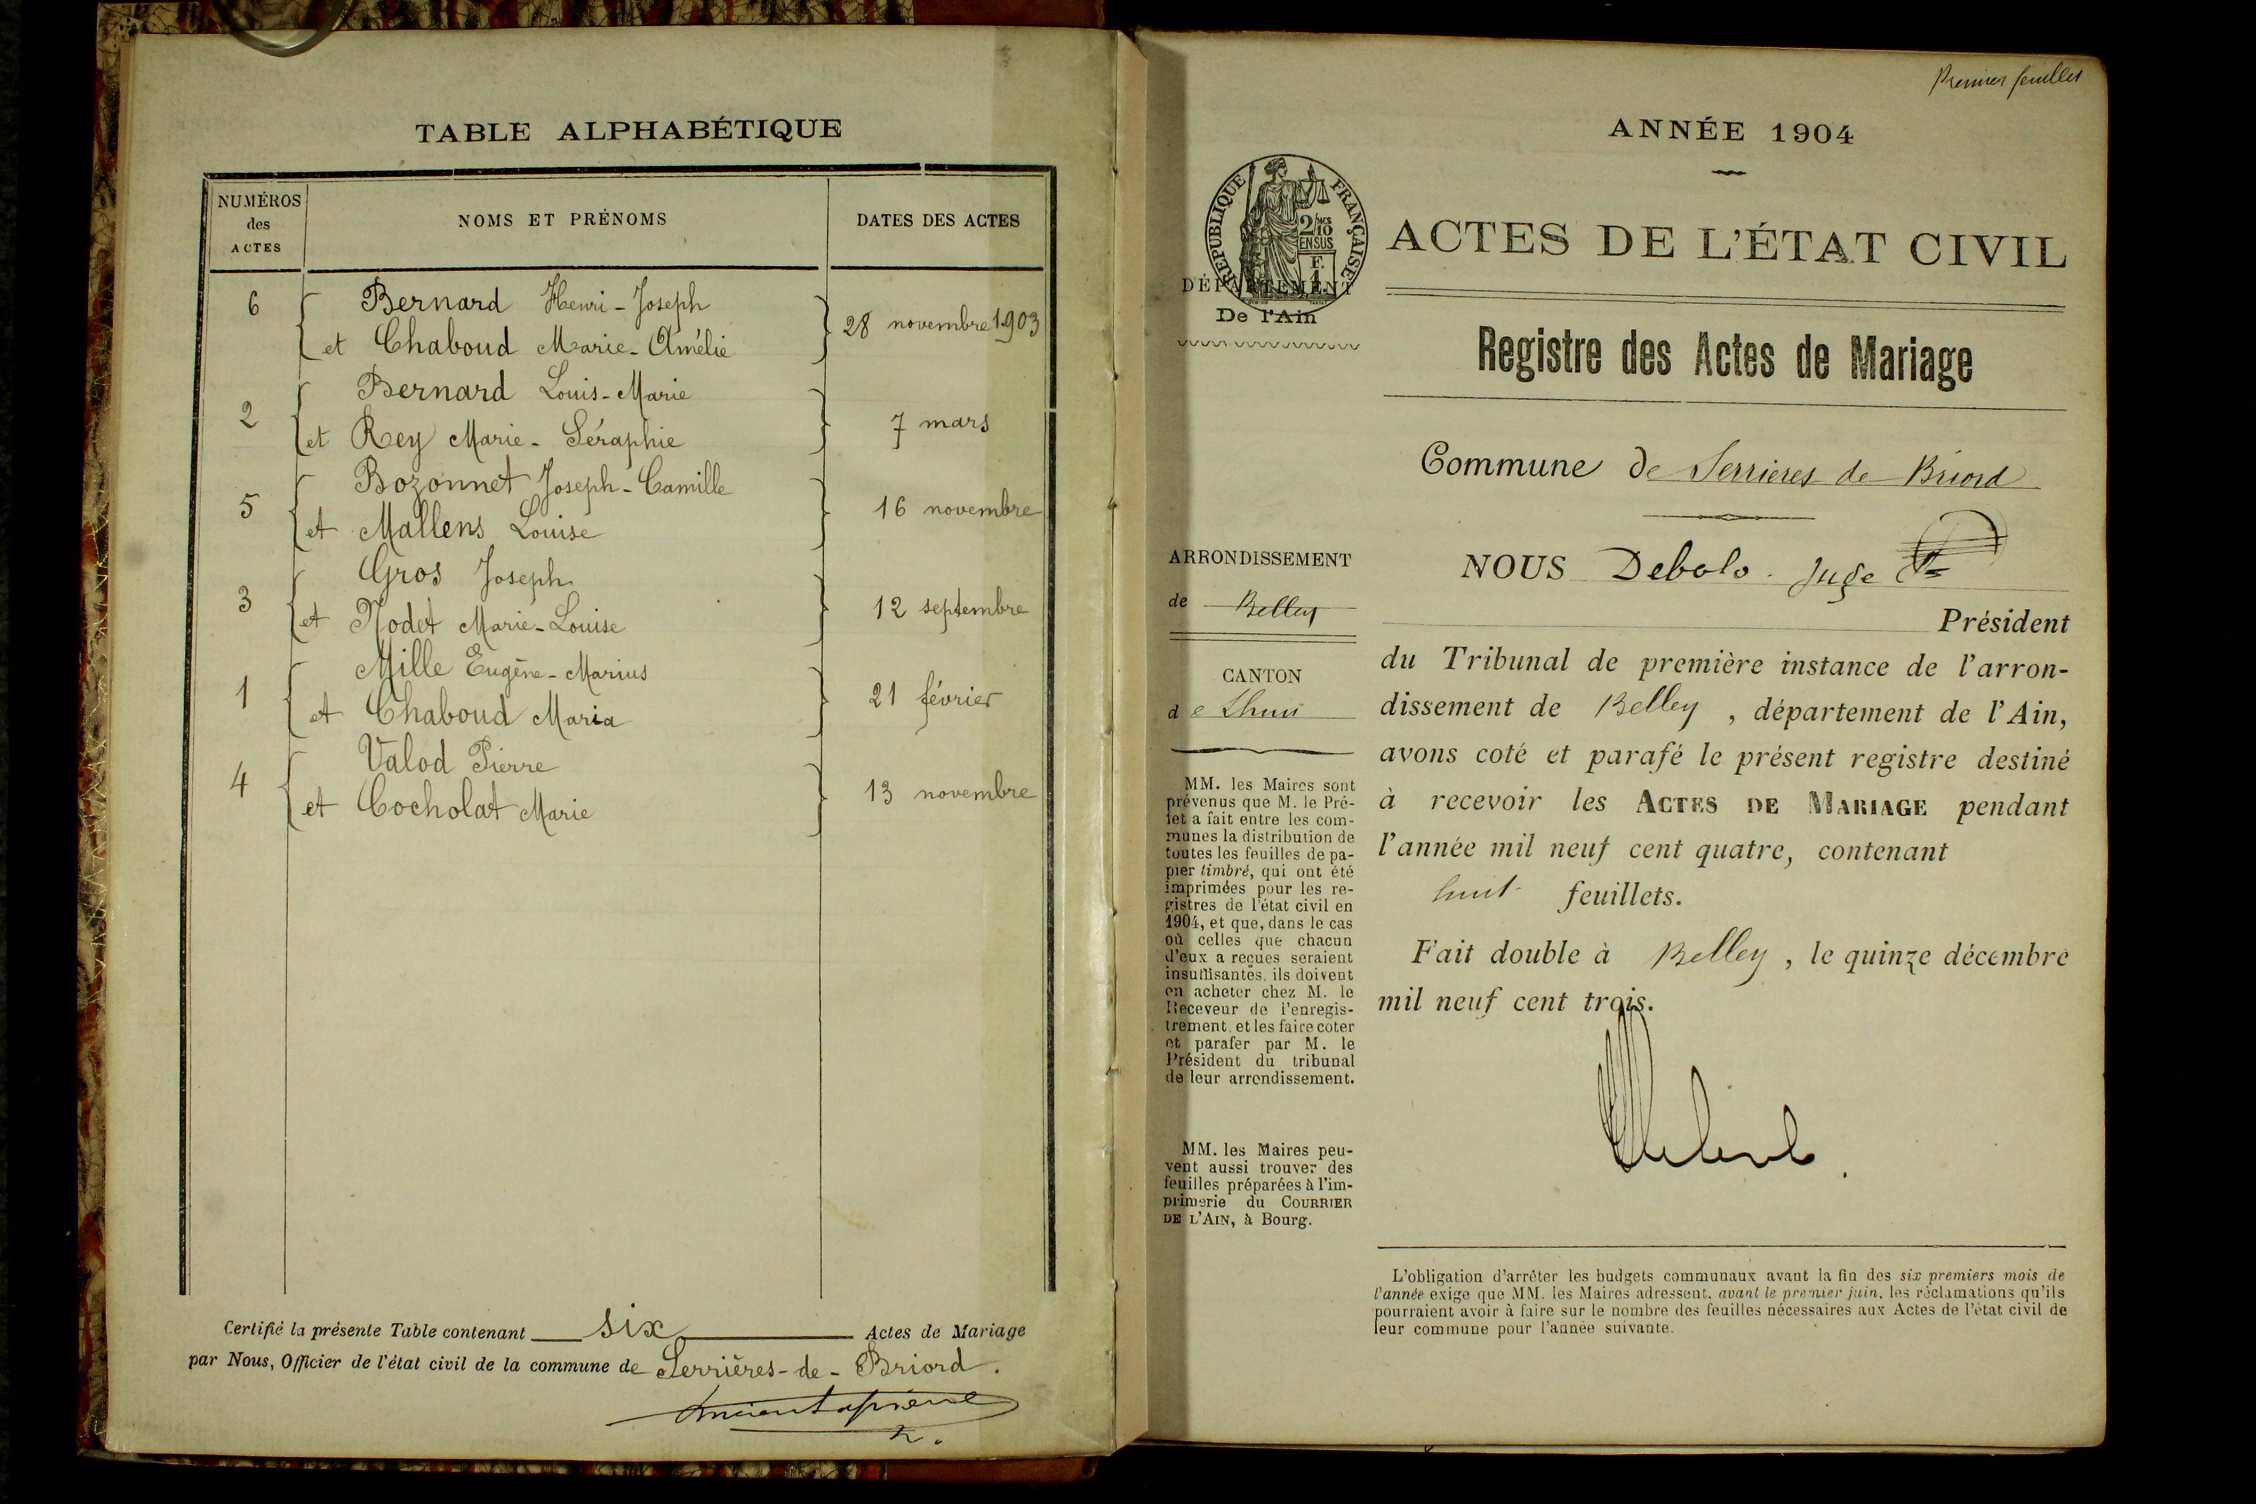 TABLE ALPHABÉTIQUE
NUMÉROS
des
ACTES
NOMS ET PRÉNOMS
DATES DES ACTES
6
Bernard Henri-Joseph
et Chaboud Marie-Amélie
28 novembre 1903
2
Bernard Louis-Marie
et Rey Marie-Séraphie
7 mars
5
Bozonnet Joseph-Camille
et Mallens Louise
16 novembre
3
Gros Joseph
et Nodet Marie-Louise
12 septembre
1
Mille Eugène-Marius
et Chaboud Maria
21 février
4
Valod Pierre
et Cocholat Marie
13 novembre
Certifié la présente Table contenant six Actes de Mariage
par Nous, Officier de l'état civil de la commune de Serrières-de-Briord.
Premier feuillet
ANNÉE 1904
RÉPUBLIQUE FRANÇAISE
2/10
EN SUS
F.
1.
ACTES DE L'ÉTAT CIVIL
DÉPARTEMENT
De l'Ain
Registre des Actes de Mariage
Commune de Serrieres de Briord
ARRONDISSEMENT
de Belley
CANTON
de Lhuis
MM. les Maires sont
prévenus que M. le Pré-
fet a fait entre les com-
munes la distribution de
toutes les feuilles de pa-
pier timbré, qui ont été
imprimées pour les re-
gistres de l'état civil en
1904, et que, dans le cas
où celles que chacun
d'eux a reçues seraient
insuffisantes, ils doivent
en acheter chez M. le
Receveur de l'enregis-
trement, et les faire coter
et parafer par M. le
Président du tribunal
de leur arrondissement.
MM. les Maires peu-
vent aussi trouver des
feuilles préparées à l'im-
primerie du COURRIER
DE L'AIN, à Bourg.
NOUS Debolo. Juge
Président
du Tribunal de première instance de l'arron-
dissement de Belley, département de l'Ain,
avons coté et parafé le présent registre destiné
à recevoir les ACTES DE MARIAGE pendant
l'année mil neuf cent quatre, contenant
huit feuillets.
Fait double à Belley, le quinze décembre
mil neuf cent trois.
L'obligation d'arrêter les budgets communaux avant la fin des six premiers mois de
l'année exige que MM. les Maires adressent, avant le premier juin, les réclamations qu'ils
pourraient avoir à faire sur le nombre des feuilles nécessaires aux Actes de l'état civil de
leur commune pour l'année suivante.